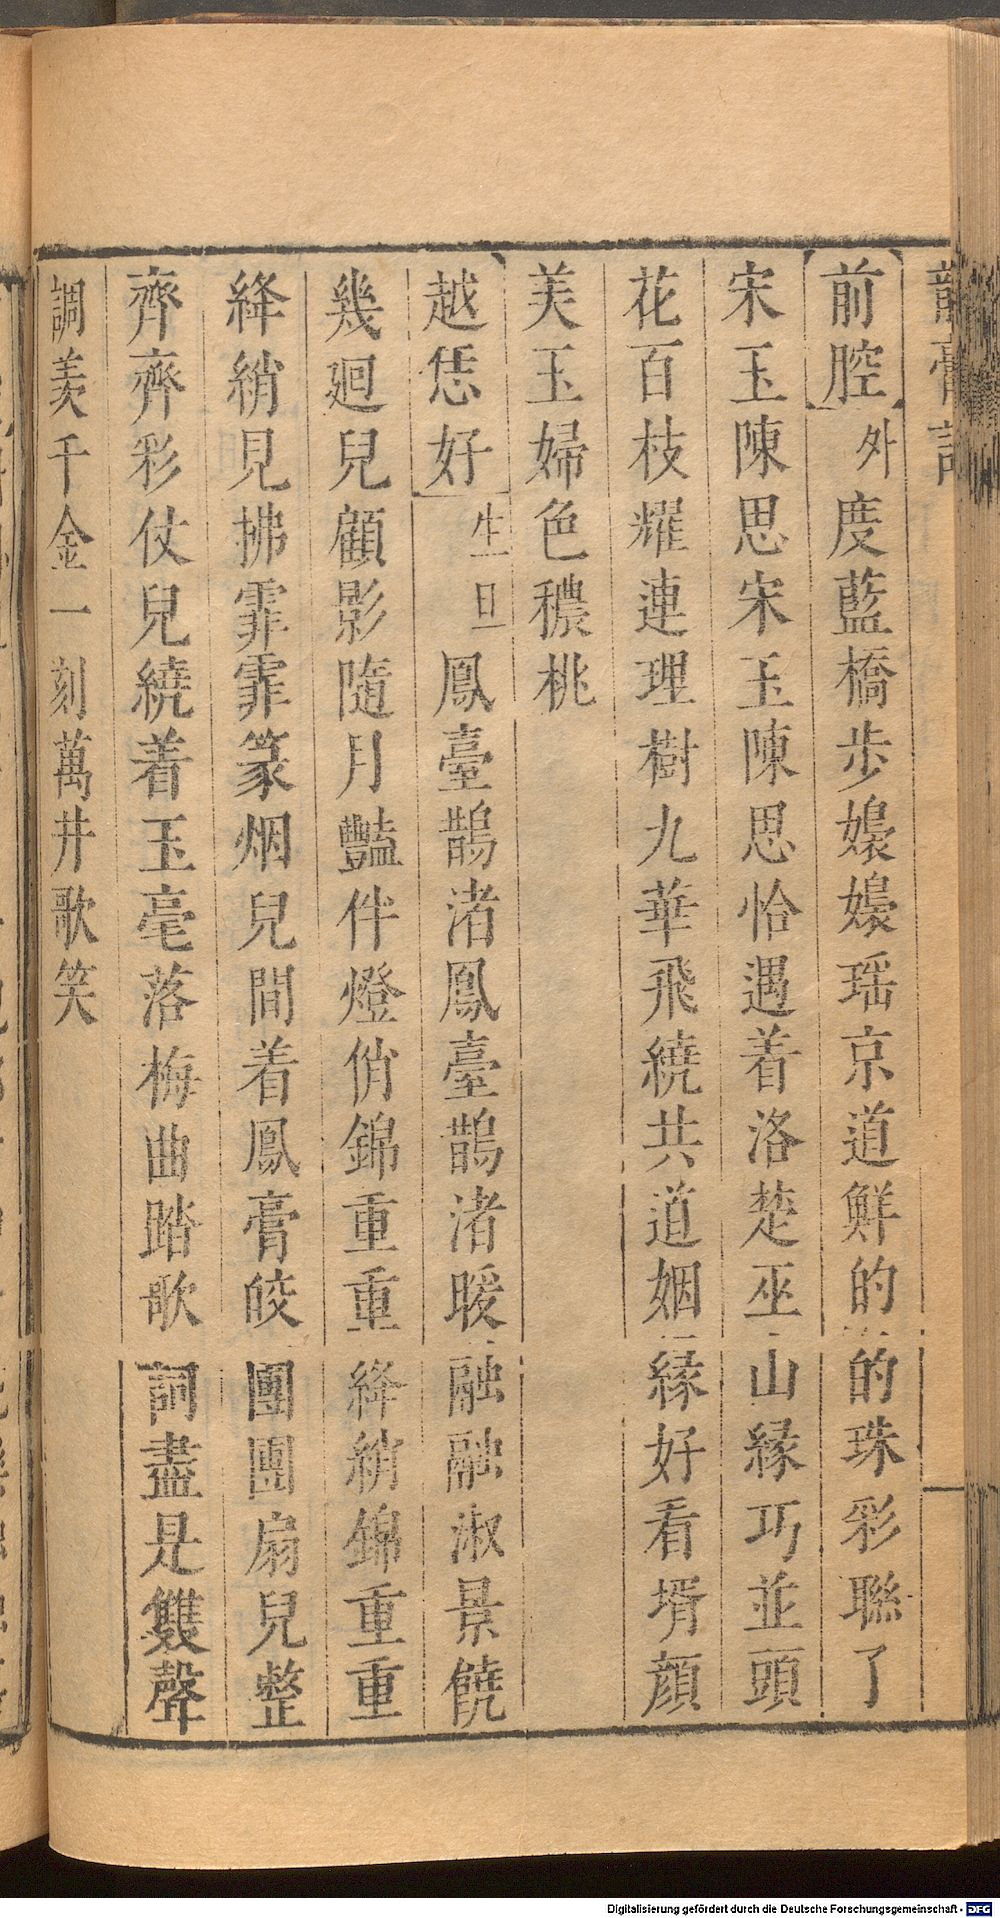 龍膏記
【前腔】外度藍橋步嬝嬝瑶京道鮮的的珠彩聮了
宋玉陳思宋玉陳思恰遇着洛楚巫山緣巧並頭
花百枝耀連理樹九華飛繞共道姻緣好看壻顔
美玉婦色穠桃
【越恁好】生旦鳳臺鵲渚鳳臺鵲渚暖融融淑景饒
幾廻兒顧影隨月豔伴燈俏錦重重絳綃錦重重
絳綃見拂霏霏篆烟兒間着鳳膏皎團團扇兒整
齊齊彩仗兒繞着玉毫落梅曲踏歌詞盡是雙聲
調美千金一刻萬井歌笑
Digitalisierung gefördert durch die Deutsche Forschungsgemeinschaft - DFG